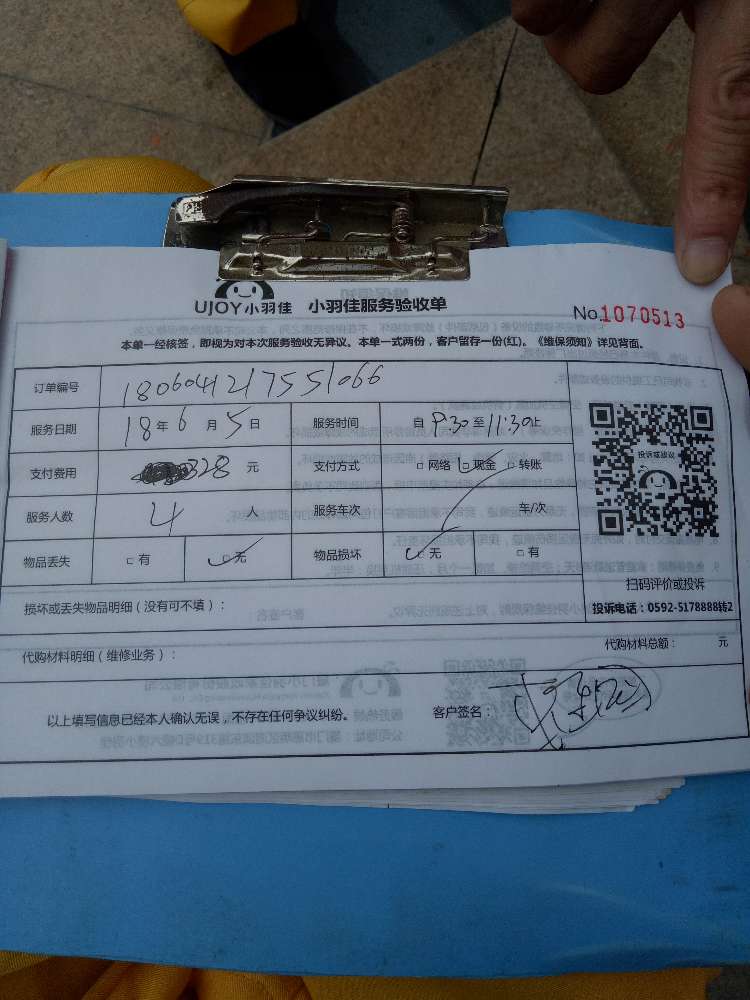 UJOY小羽佳 小羽佳服务验收单 No.1070513
本单一经核签，即视为对本次服务验收无异议。本单一式两份，客户留存一份(红)。《维保须知》详见背面。
订单编号 180604217551066
服务日期 18年6月5日 服务时间 自9:30至11:30止
支付费用 328元 支付方式 □网络 □现金 □转账
投诉或建议
服务人数 4人 服务车次 车/次
物品丢失 □有 □无 物品损坏 □无 □有
扫码评价或投诉
损坏或丢失物品明细（没有可不填）：
投诉电话：0592-5178888转2
代购材料明细（维修业务）：
代购材料总额： 元
以上填写信息已经本人确认无误，不存在任何争议纠纷。 客户签名：